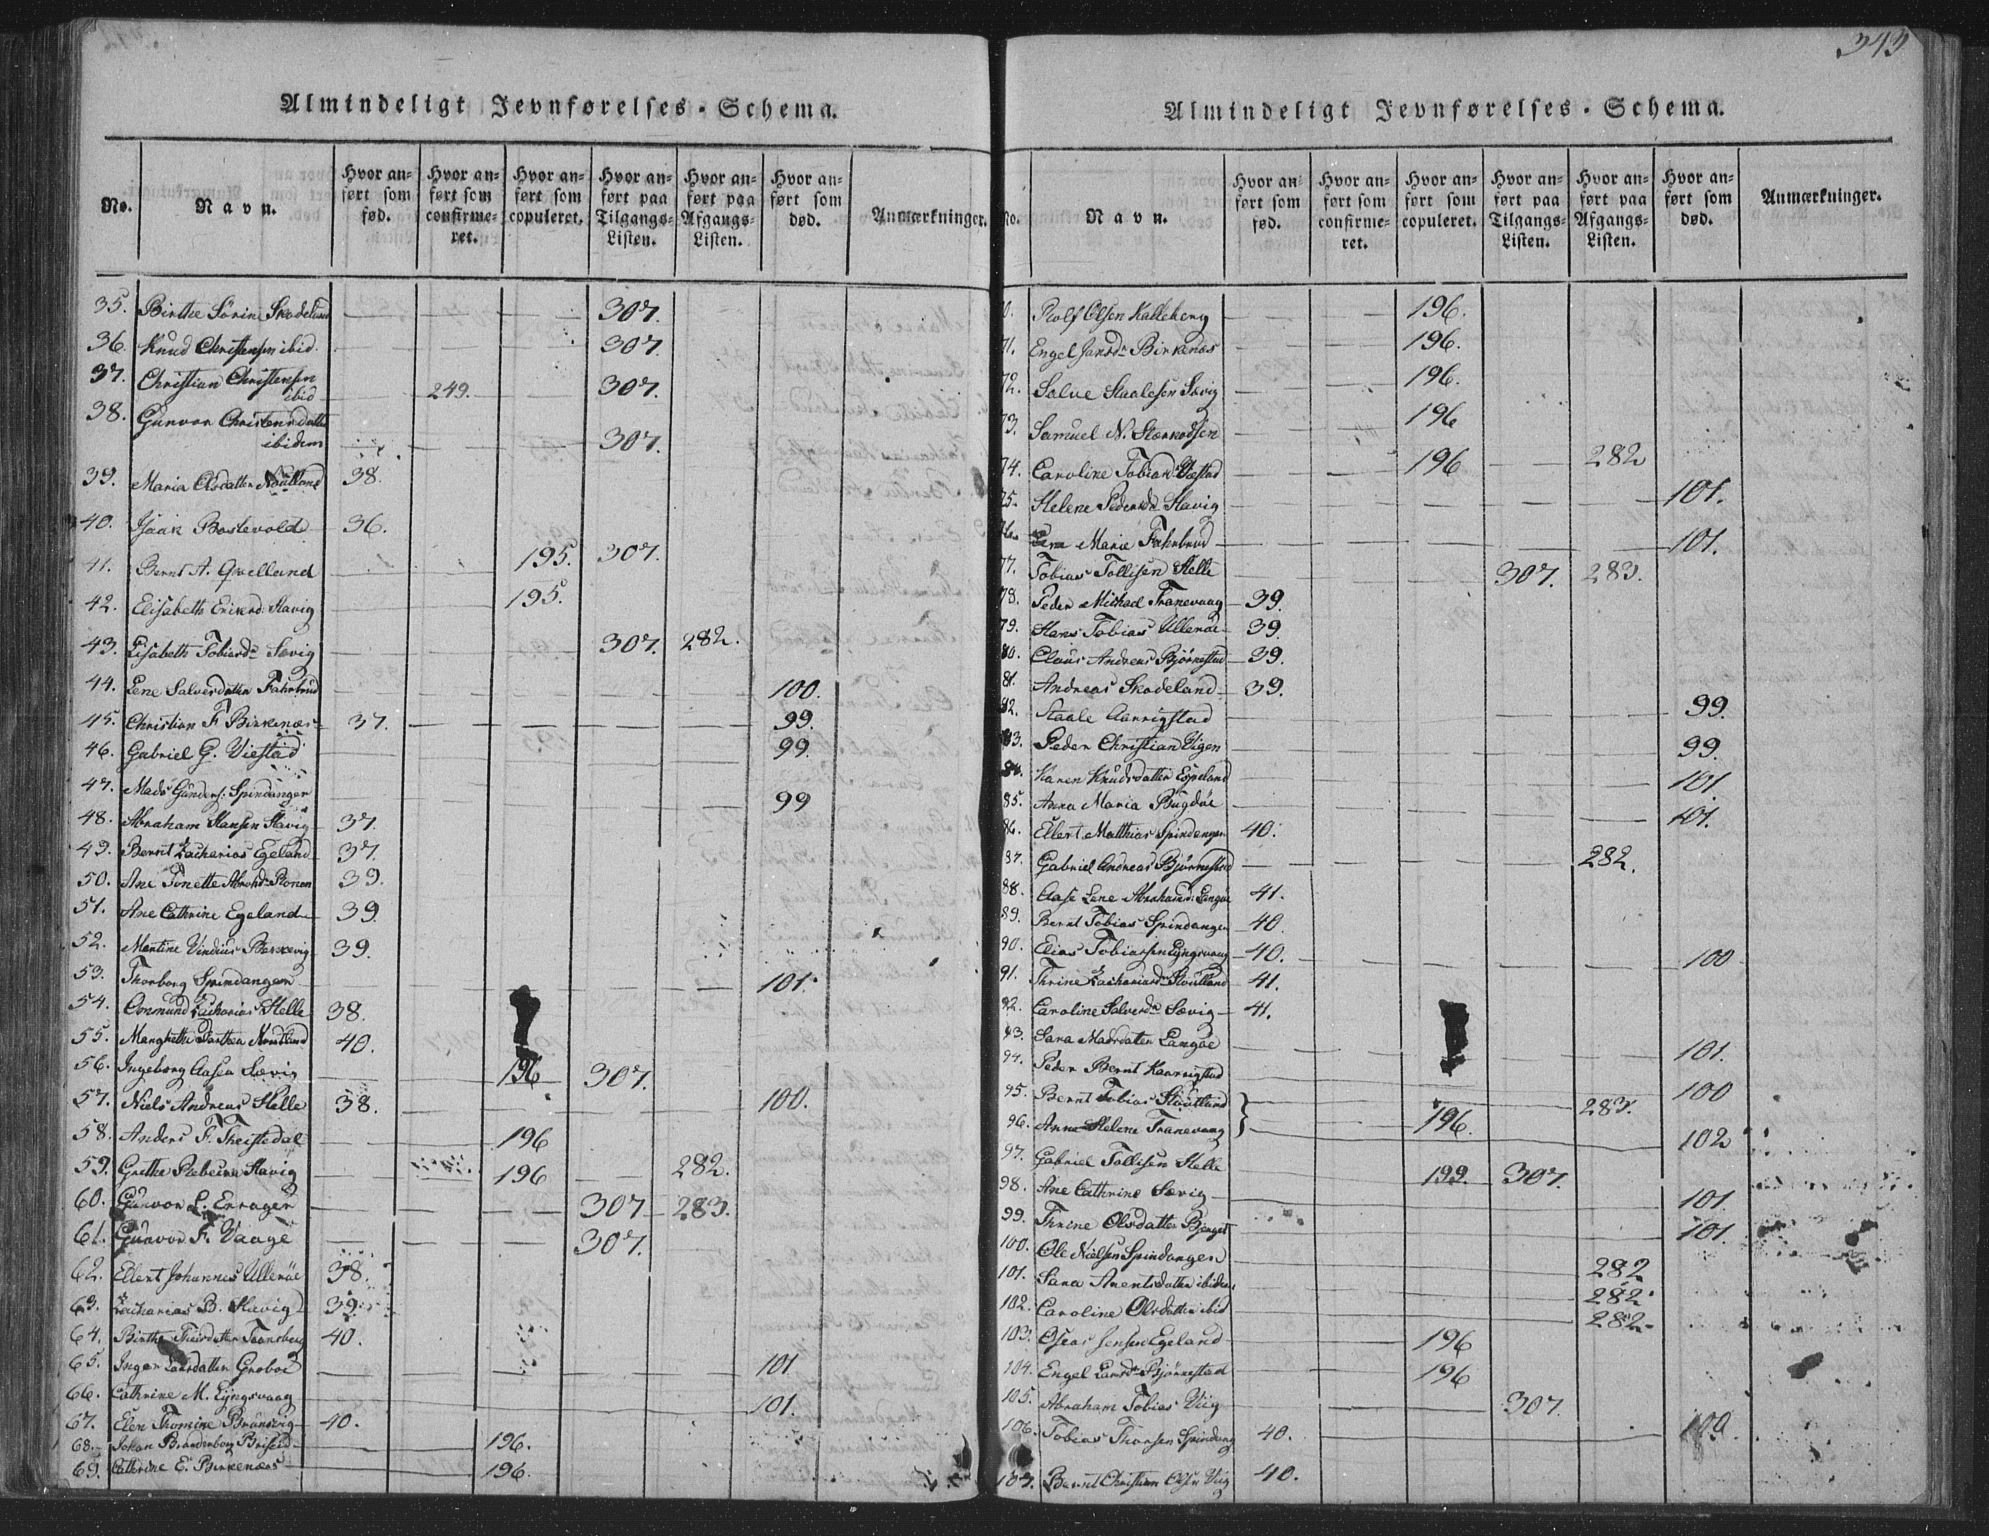 343
Almindeligt Jevnførelses-Schema.
No.
Navn.
Hvor anført som fød.
Hvor anført som confirmeret.
Hvor anført som copuleret.
Hvor anført paa Tilgangs-Listen.
Hvor anført paa Afgangs-Listen.
Hvor anført som død.
Anmærkninger.
35. Birthe Sørine Skodelund 307.
36. Knud Christensen ibid. 307.
37. Christian Christensen
ibid 249. 307.
38. Gunvor Christensdatter
ibidem 307.
39. Maria Olsdatter 38.
40. Isaak Bostevold 36.
41. Bernt A. Qvelland 195. 307.
42. Elisabeth Eriksd. Havig 195.
43. Elisabeth Tobiasd. Sævig 307. 282.
44. Lene Salvesdatter Fahrbrud 100.
45. Christian F. Birkenæs 37. 99.
46. Gabriel G. Viestad 99.
47. Mads Gunders. Spindangen 99
48. Abraham Hansen Havig 37.
49. Bernt Zacharias Egeland 37.
50. Ane Tonette Abrahd. Ronen 39.
51. Ane Cathrine Egeland 39.
52. Martine Vindius Berkevig 39.
53. Thorborg Spindangen 101.
54. Osmund Zacharias Helle 38.
55. 40.
56. Ingeborg Aasen Sævig 196 307.
57. Niels Andreas Helle 38. 100.
58. Anders F. Theistedal 196
59. Grethe Rebecca Havig 196 282.
60. Gunvor L. Erragen 307 283.
61. Gunvor F. Vaage 307.
62. Edert Johannes Ullerøe 38.
63. Zacharias B. Havig 39.
64. Birthe Theisdatter 40.
65. Inger Larsdatter Groboe 101
66. Cathrine M. Eyngsvaag 101.
67. Elen Thomine Brunsvig 40.
68. Johan Brandenborg 196.
69. Cathrine E. Birkenæs 196.
Almindeligt Jevnførelses-Schema.
No.
Navn.
Hvor anført som fød.
Hvor anført som confirmeret.
Hvor anført som copuleret.
Hvor anført paa Tilgangs-Listen.
Hvor anført paa Afgangs-Listen.
Hvor anført som død.
Anmærkninger.
0. Rolf Olsen Kalleberg 196.
71. Engel Jansd. Birkenæs 196.
72. Salve Staalesen Sævig 196.
73. Samuel N. Stærkodsen 196
74. Caroline Tobiasd. Viestad 196 282
75. Helene Pedersd. Havig 101.
Marie Fahrbrud 101.
77. Tobias Tollisen Helle 307. 283.
78. Peder Michael Tranevaag 39.
79. Hans Tobias Ullerøe 39.
80. Claus Andreas Bjørnestad 39.
81. Andreas Skodeland 39.
82. Staale Aarrigstad 99.
83. Peder Christian Vigen 99.
84. Karen Knudsdatter Espeland 101
85. Anna Maria Bugdøe 101.
86. Edert Matthias Spindangen 40.
87. Gabriel Andreas Bjørnestad 282.
88. Aase Lene Abrahamd. Langøe 41.
89. Bernt Tobias Spindangen 40.
90. Elias Tobiassen Eyngsvaag 40. 100
91. Thrine Zachariasd. Stoutland 41.
92. Caroline Salvesd. Sævig 41.
93. Sara Madsdatter Langøe 101.
94. Peder Bernt Kaarrigstad 100
95. Bernt Tobias Stoutland 283.
96. Anne Helene Tranevaag 196. 102
97. Gabriel Tollisen Helle 199 307.
98. Ane Cathrine Sævig 101.
99. Thrine Olsdatter 101.
100. Ole Nielsen Spindangen 282
101. Sara Arentsdatter ibidem 282
102. Caroline Olsdatter ibid 282
103. Osear Jensen Egeland 196
104. Engel Larsd. Bjørnestad 196
105. Abraham Tobias Viig 307.
106. Tobias Thorsen Spindang 40. 100.
107. Bernt Christian Olsen Viig 40.